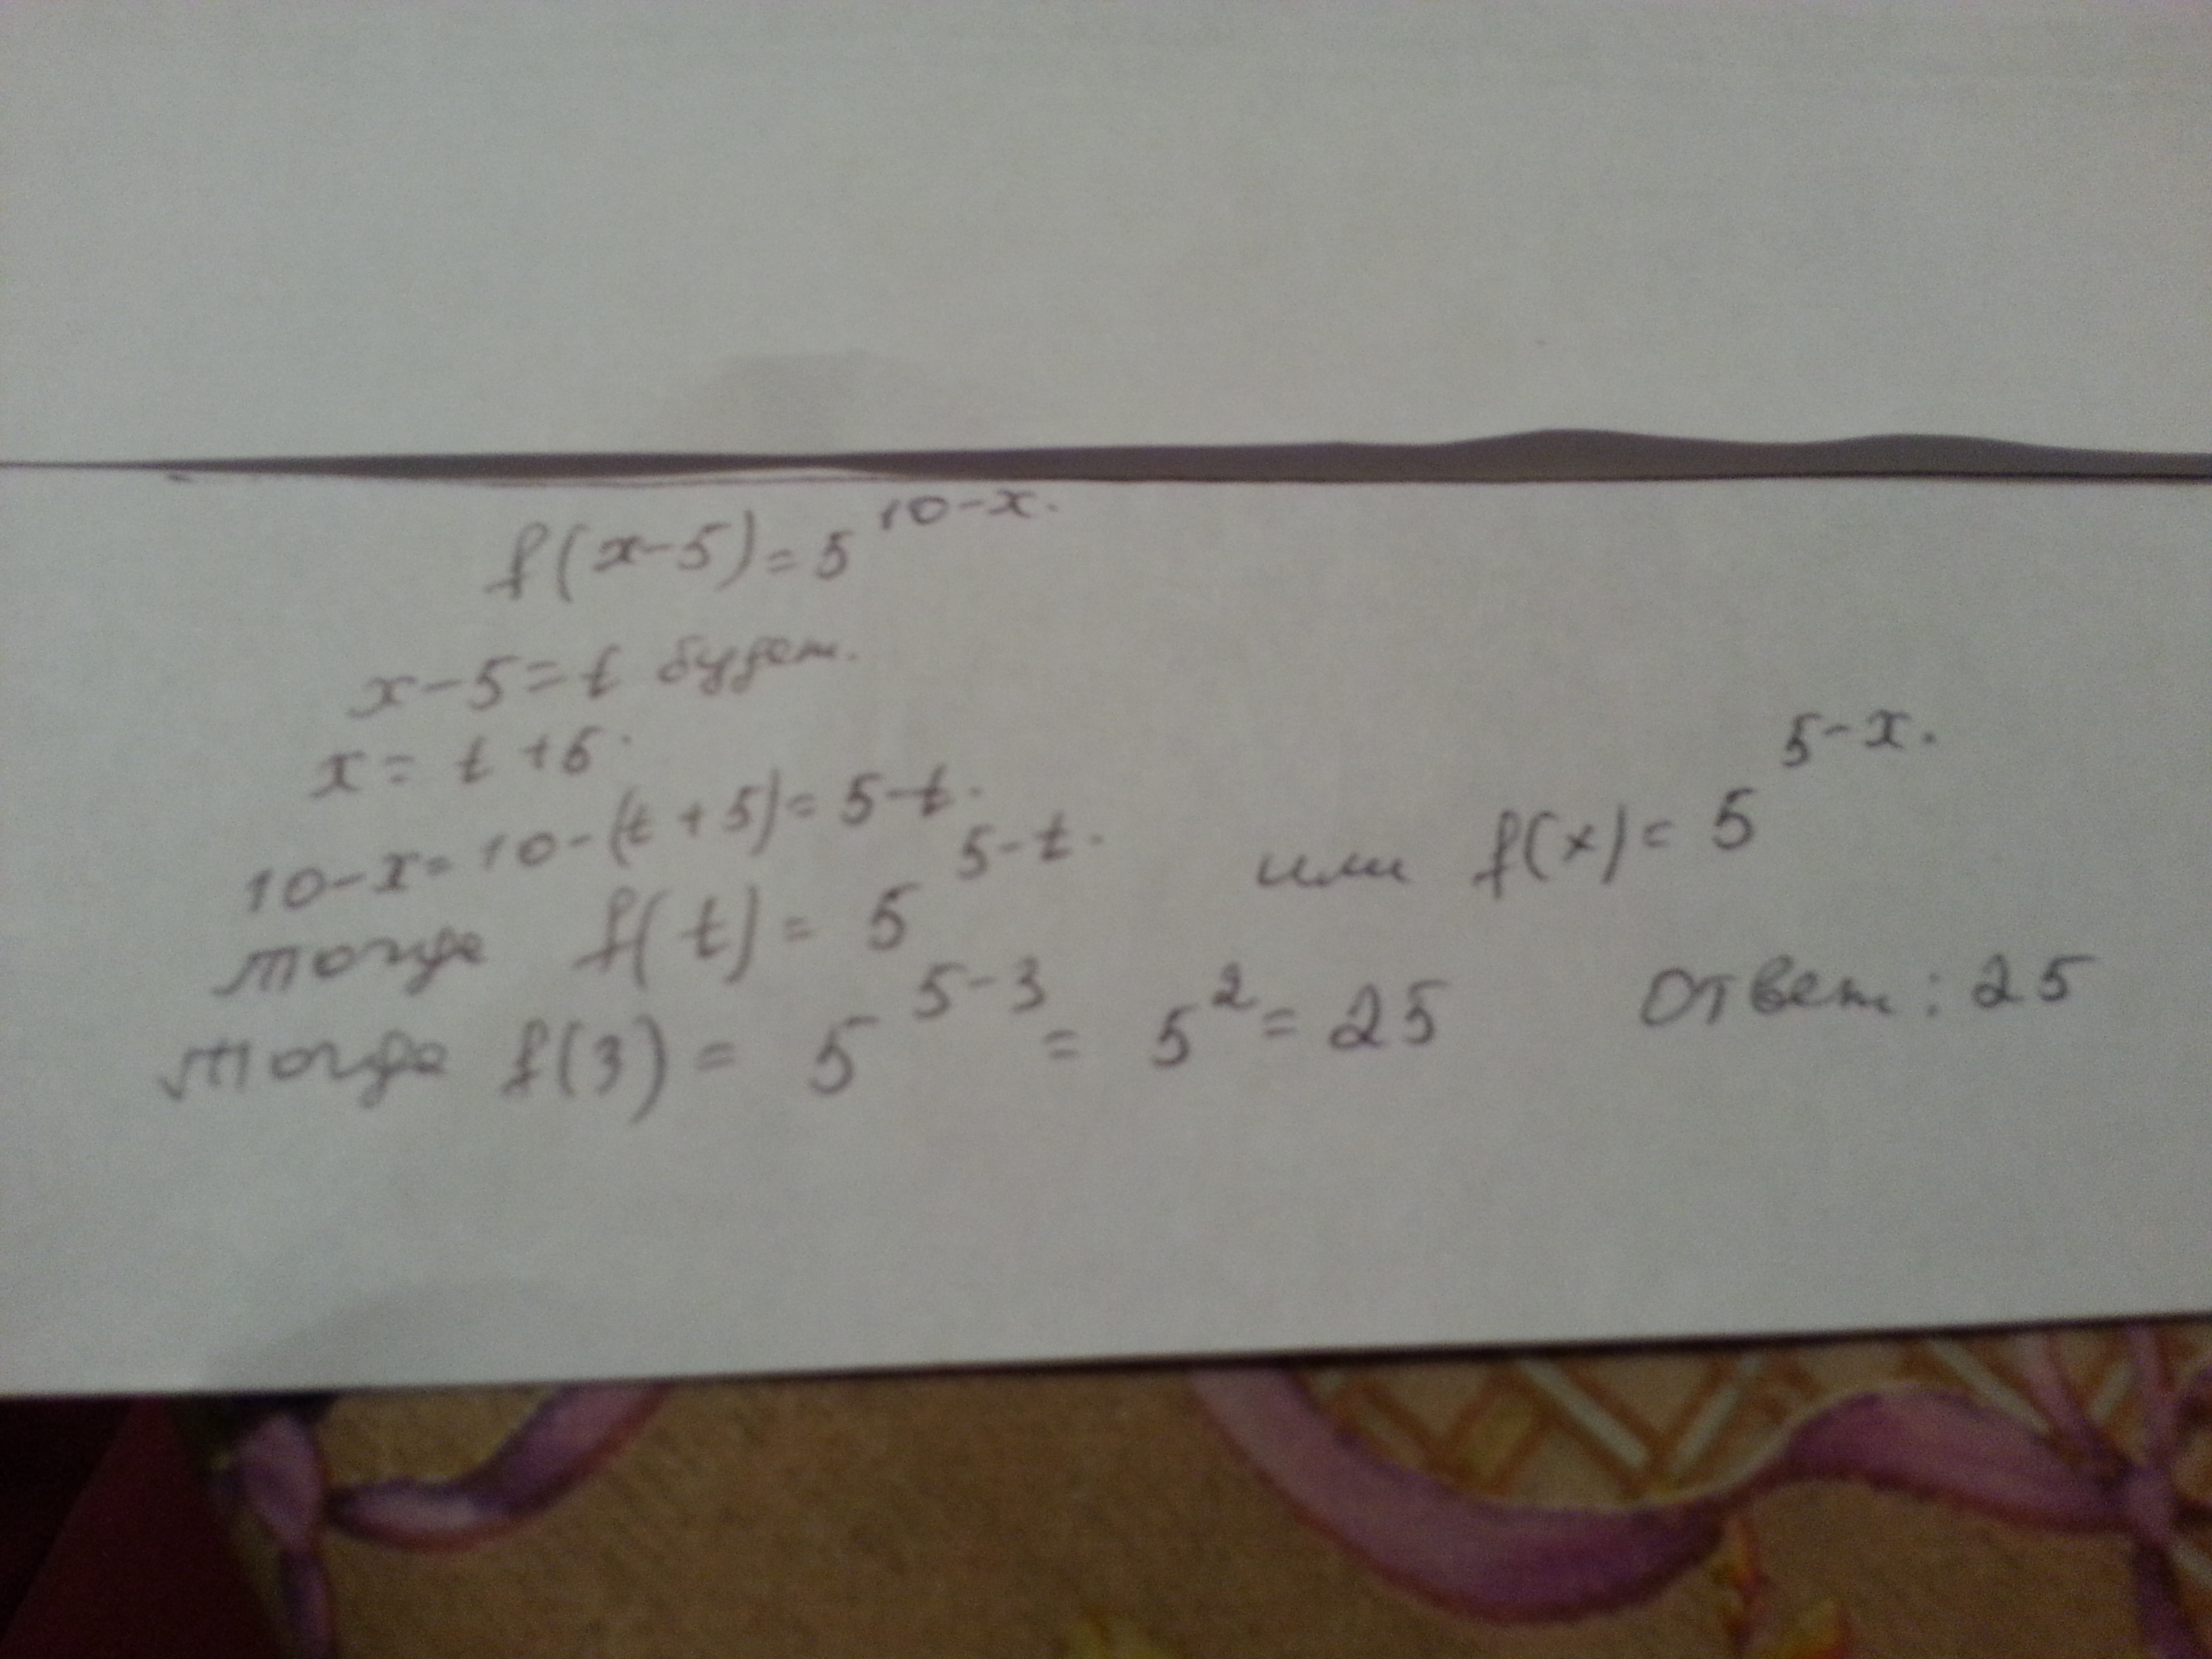 f(x-5)=5^{10-x}.
x-5=t будет.
x= t+5.
10-x=10-(t+5)=5-t.
тогда f(t)= 5^{5-t}. или f(x)= 5^{5-x}.
тогда f(3)= 5^{5-3}= 5^2= 25 Ответ: 25